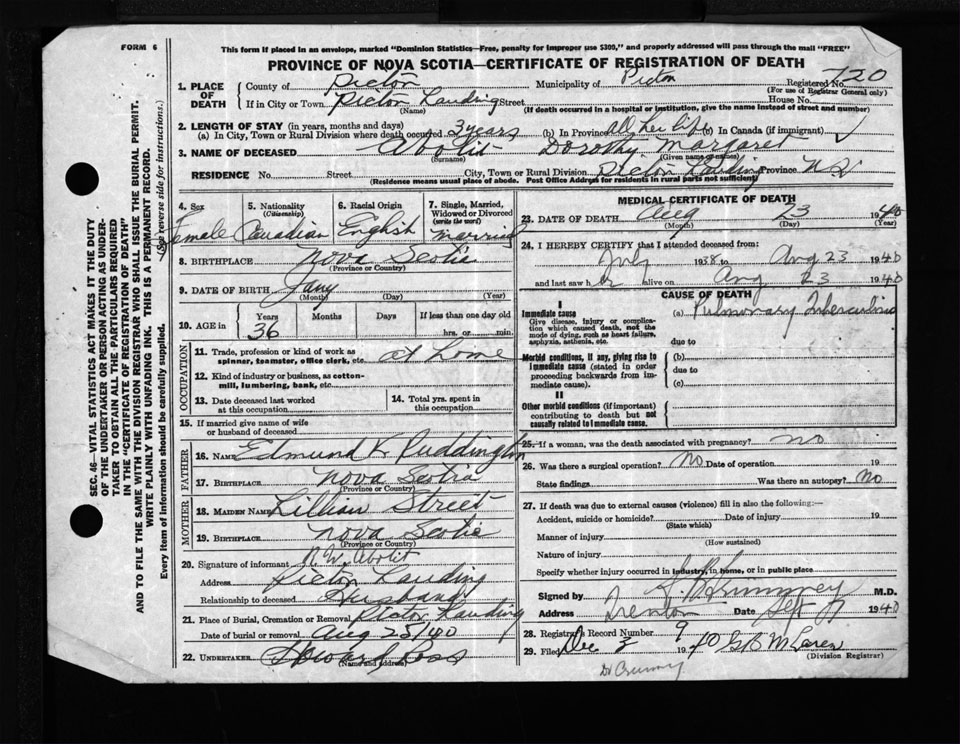 FORM 6
This form if placed in an envelope, marked "Dominion Statistics—Free, penalty for improper use $300," and properly addressed will pass through the mail "FREE"
PROVINCE OF NOVA SCOTIA—CERTIFICATE OF REGISTRATION OF DEATH
1. PLACE OF DEATH
County of Pictou Municipality of Pictou Registered No. 720
(For use of Registrar General only)
If in City or Town Pictou Landing Street House No.
(Name) (If death occurred in a hospital or institution, give the name instead of street and number)
2. LENGTH OF STAY (in years, months and days)
(a) In City, Town or Rural Division where death occurred 3 years (b) In Province All her life (c) In Canada (if immigrant)
3. NAME OF DECEASED Abolit Dorothy Margaret
(Surname) (Given name or names)
RESIDENCE No. Street City, Town or Rural Division Pictou Landing Province N.S.
(Residence means usual place of abode. Post Office Address for residents in rural parts not sufficient)
4. Sex
Female
5. Nationality
(Citizenship)
Canadian
6. Racial Origin
English
7. Single, Married, Widowed or Divorced
(write the word)
Married
8. BIRTHPLACE Nova Scotia
(Province or Country)
9. DATE OF BIRTH Jany
(Month) (Day) (Year)
10. AGE in Years Months Days If less than one day old
36 hrs. or min.
OCCUPATION
11. Trade, profession or kind of work as spinner, teamster, office clerk, etc. at home
12. Kind of industry or business, as cotton-mill, lumbering, bank, etc.
13. Date deceased last worked at this occupation
14. Total yrs. spent in this occupation
15. If married give name of wife or husband of deceased
FATHER
16. NAME Edmund K Puddington
17. BIRTHPLACE Nova Scotia
(Province or Country)
MOTHER
18. MAIDEN NAME Lillian Street
19. BIRTHPLACE Nova Scotia
(Province or Country)
20. Signature of informant R.W. Abolit
Address Pictou Landing
Relationship to deceased Husband
21. Place of Burial, Cremation or Removal Pictou Landing
Date of burial or removal Aug 25/40
22. UNDERTAKER Howard Ross
(Name and address)
MEDICAL CERTIFICATE OF DEATH
23. DATE OF DEATH Aug 23 1940
(Month) (Day) (Year)
24. I HEREBY CERTIFY that I attended deceased from:
July 1938 to Aug 23 1940
and last saw her alive on Aug 23 1940
CAUSE OF DEATH
I
Immediate cause
Give disease, injury or complication which caused death, not the mode of dying, such as heart failure, asphyxia, asthenia, etc.
(a) Pulmonary Tuberculosis
due to
Morbid conditions, if any, giving rise to immediate cause (stated in order proceeding backwards from immediate cause).
(b)
due to
(c)
II
Other morbid conditions (if important) contributing to death but not causally related to immediate cause.
25. If a woman, was the death associated with pregnancy? no
26. Was there a surgical operation? No Date of operation 19
State findings Was there an autopsy? No
27. If death was due to external causes (violence) fill in also the following:—
Accident, suicide or homicide? Date of injury 19
(State which)
Manner of injury
(How sustained)
Nature of injury
Specify whether injury occurred in industry, in home, or in public place
Signed by M.D.
Address Trenton Date Sept 1940
28. Registrar's Record Number 9
29. Filed Dec 3 1940 McLaren
(Division Registrar)
Dr
SEC. 46—VITAL STATISTICS ACT MAKES IT THE DUTY
OF THE UNDERTAKER OR PERSON ACTING AS UNDER-
TAKER TO OBTAIN ALL THE PARTICULARS REQUIRED
IN THE "CERTIFICATE OF REGISTRATION OF DEATH"
AND TO FILE THE SAME WITH THE DIVISION REGISTRAR WHO SHALL ISSUE THE BURIAL PERMIT.
WRITE PLAINLY WITH UNFADING INK. THIS IS A PERMANENT RECORD.
Every item of information should be carefully supplied. (See reverse side for instructions.)